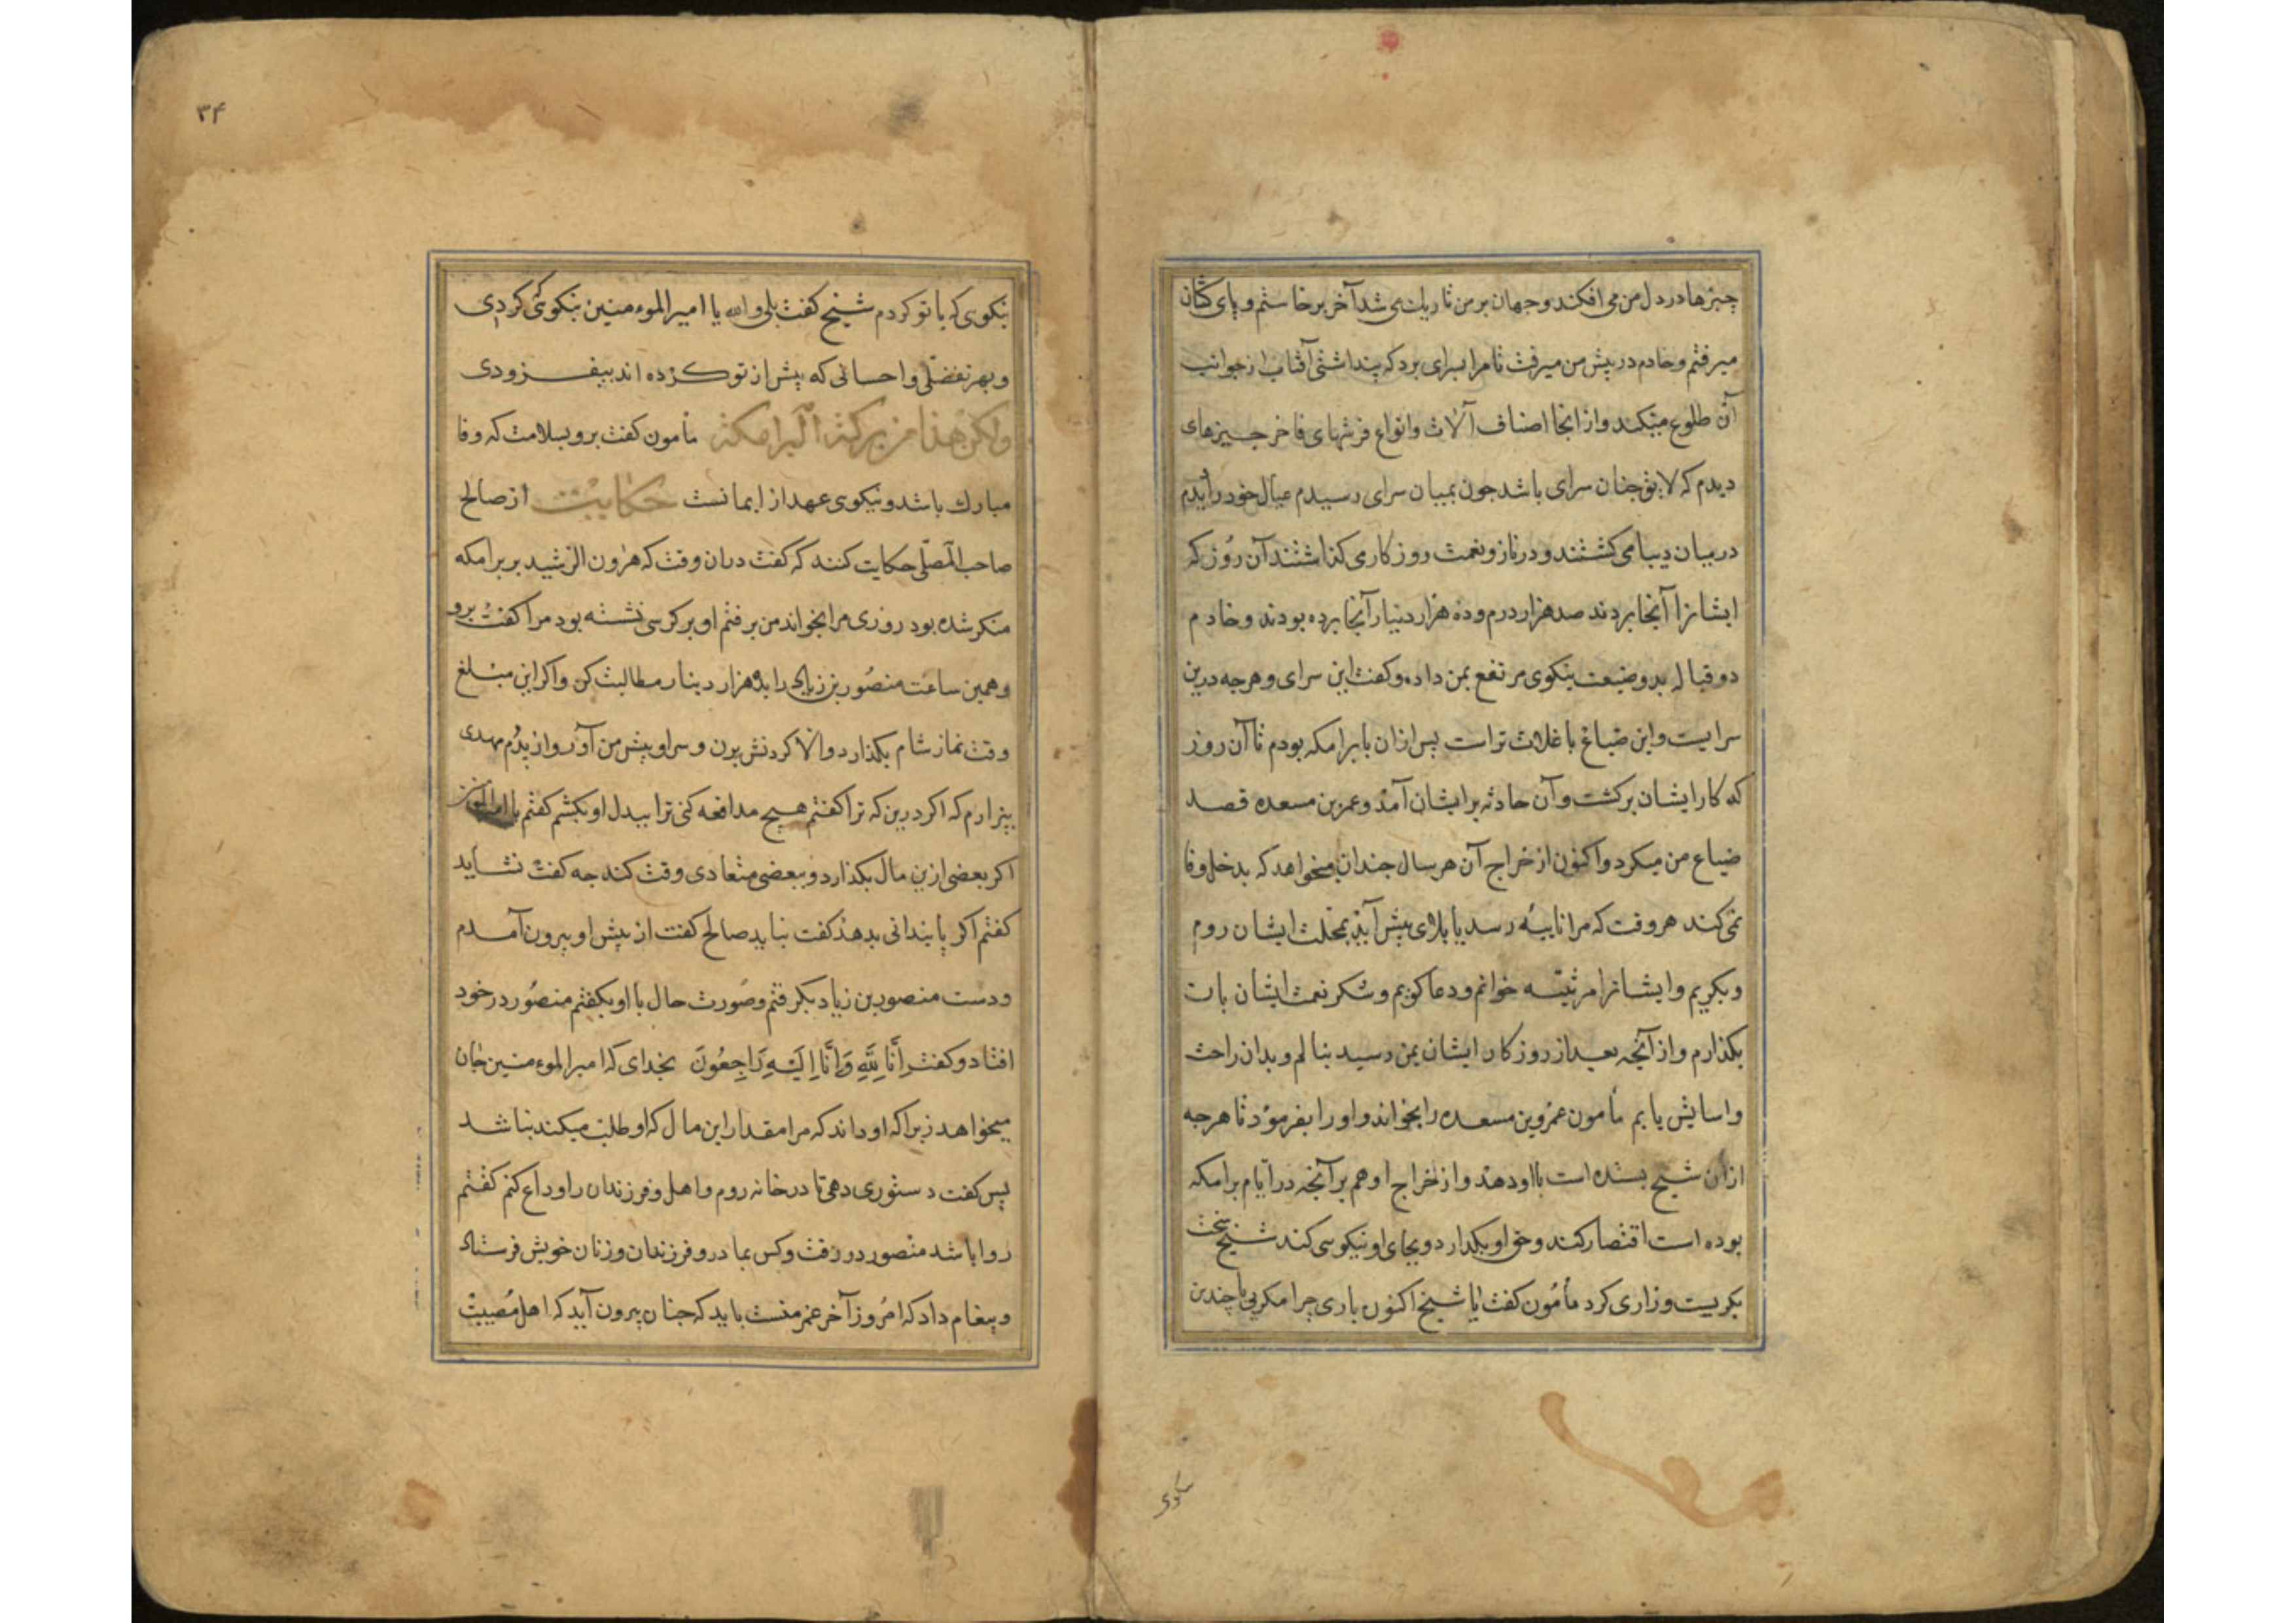 چیزها در دل من می افکند و جهان بر من تاریك می شد آخر برخاستم و پای کشان
میرفتم و خادم در پیش من میرفت تا مرا بسرای برد که پنداشتی آفتاب از جوانب
آن طلوع میکند و از انجا اصناف آلات و انواع فرشهای فاخر چیزهای
دیدم که لایق چنان سرای باشد جون بمیان سرای رسیدم عیال خود را دیدم
در میان دیبا می کشتند و در ناز و نعمت روزکاری کذاشتند آن روز که
ایشانرا آنجا بردند صد هزار درم و ده هزار دینار آنجا برده بودند و خادم
دو قباله بدو ضیعت نیکوی مرتفع بمن داد و کفت این سرای و هرجه درین
سرایست و این ضیاع با غلات تراست پس ازان با برامکه بودم تا آن روز
که کار ایشان برکشت و آن حادثه بر ایشان آمد و عمر بن مسعده قصد
ضیاع من میکرد و اکنون از خراج آن هر سال جندان میخواهد که بدخل وفا
نمی کند هر وقت که مرا نایبه رسد یا بلای پیش آید بمحلت ایشان روم
و بکریم و ایشانرا مرثیه خوانم و دعا کویم و شکر نعمت ایشان بات
بکذارم و از آنجه بعد از روزکار ایشان بمن رسید بنالم و بدان راحت
و اسایش یابم مأمون عمرو بن مسعده را بخواند و او را بفرمود تا هرجه
ازان شیخ بستده است با او دهد و از خراج او هم بر آنجه در ایام برامکه
بوده است اقتصار کند و حق او بکذارد و بجای او نیکوسی کند شیخ سخت
بکریست و زاری کرد مأمون کفت یا شیخ اکنون باری چرا میکریی با چندین
نیکوی
۳۴
نیکوی که با تو کردم شیخ کفت بلی والله یا امیر الموءمنین نیکوئی کردی
و بهر تفضلی و احسانی که پیش از تو کرده اند بیفزودی
ولکن هذا من برکة البرامکة مأمون کفت برو بسلامت که وفا
مبارك باشد و نیکوی عهد از ایمانست حکایت از صالح
صاحب المصلی حکایت کنند که کفت دران وقت که هرون الرشید بر برامکه
متکر شده بود روزی مرا بخواند من برفتم او بر کرسی نشسته بود مرا کفت برو
و همین ساعت منصور بن زیاد را بده هزار دینار مطالبت کن و اکر این مبلغ
وقت نماز شام بکذارد والا کردنش بزن و سر او پیش من آور و از پدرم مهدی
بیزارم که اکر درین که ترا کفتم هیچ مدافعه کنی ترا ببدل او بکشم کفتم یا امیر المومنین
اکر بعضی ازین مال بکذارد و ببعضی متعادی وقت کند جه کفت نشاید
کفتم اکر پایندانی بدهد کفت نباید صالح کفت از پیش او بیرون آمدم
و دست منصور بن زیاد بکرفتم و صورت حال با او بکفتم منصور در خود
افتاد و کفت إنا لله وإنا إليه راجعون بخدای که امیر الموءمنین جان
میخواهد زیرا که او داند که مرا مقدار این مال که او طلب میکند نباشد
پس کفت دستوری دهی تا در خانه روم و اهل و فرزندان را وداع کنم کفتم
روا باشد منصور در رفت و کس بمادر و فرزندان و زنان خویش فرستاد
و پیغام داد که امروز آخر عمر منست باید که جنان بیرون آید که اهل مصیبت